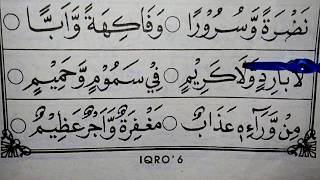 نَضْرَةً وَّسُرُوْرًا ○ وَفَاكِهَةً وَّاَبًّا
لَابَارِدٍ وَّلَا كَرِيْمٍ ○ فِيْ سَمُوْمٍ وَّحَمِيْمٍ
مِنْ وَّرَآءِهٖ عَذَابٌ ○ مَغْفِرَةٌ وَّاَجْرٌ عَظِيْمٌ
IQRO'6